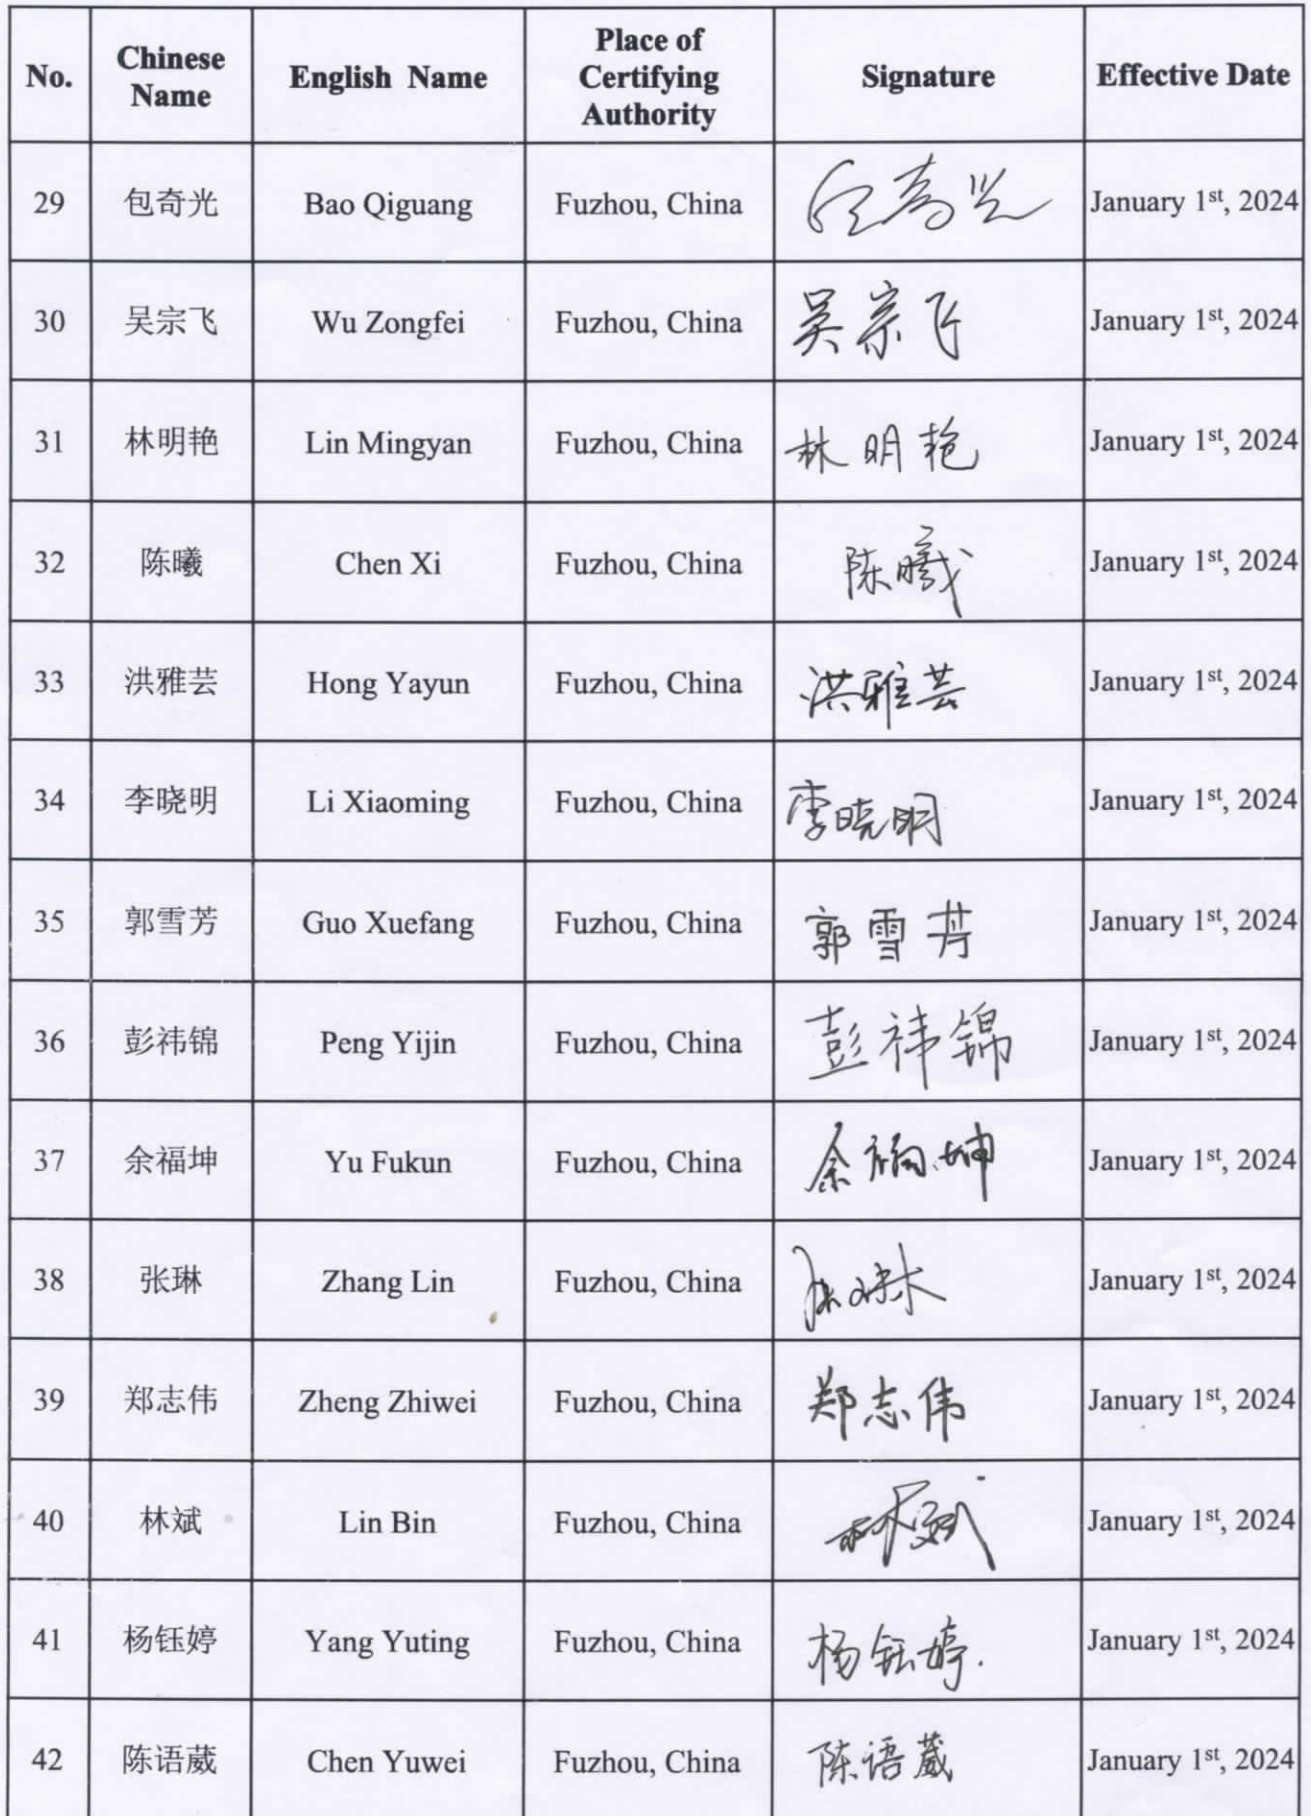 No. Chinese Name English Name Place of Certifying Authority Signature Effective Date
29 包奇光 Bao Qiguang Fuzhou, China 包奇光 January 1st, 2024
30 吴宗飞 Wu Zongfei Fuzhou, China 吴宗飞 January 1st, 2024
31 林明艳 Lin Mingyan Fuzhou, China 林明艳 January 1st, 2024
32 陈曦 Chen Xi Fuzhou, China 陈曦 January 1st, 2024
33 洪雅芸 Hong Yayun Fuzhou, China 洪雅芸 January 1st, 2024
34 李晓明 Li Xiaoming Fuzhou, China 李晓明 January 1st, 2024
35 郭雪芳 Guo Xuefang Fuzhou, China 郭雪芳 January 1st, 2024
36 彭祎锦 Peng Yijin Fuzhou, China 彭祎锦 January 1st, 2024
37 余福坤 Yu Fukun Fuzhou, China 余福坤 January 1st, 2024
38 张琳 Zhang Lin Fuzhou, China 张琳 January 1st, 2024
39 郑志伟 Zheng Zhiwei Fuzhou, China 郑志伟 January 1st, 2024
40 林斌 Lin Bin Fuzhou, China 林斌 January 1st, 2024
41 杨钰婷 Yang Yuting Fuzhou, China 杨钰婷. January 1st, 2024
42 陈语葳 Chen Yuwei Fuzhou, China 陈语葳 January 1st, 2024